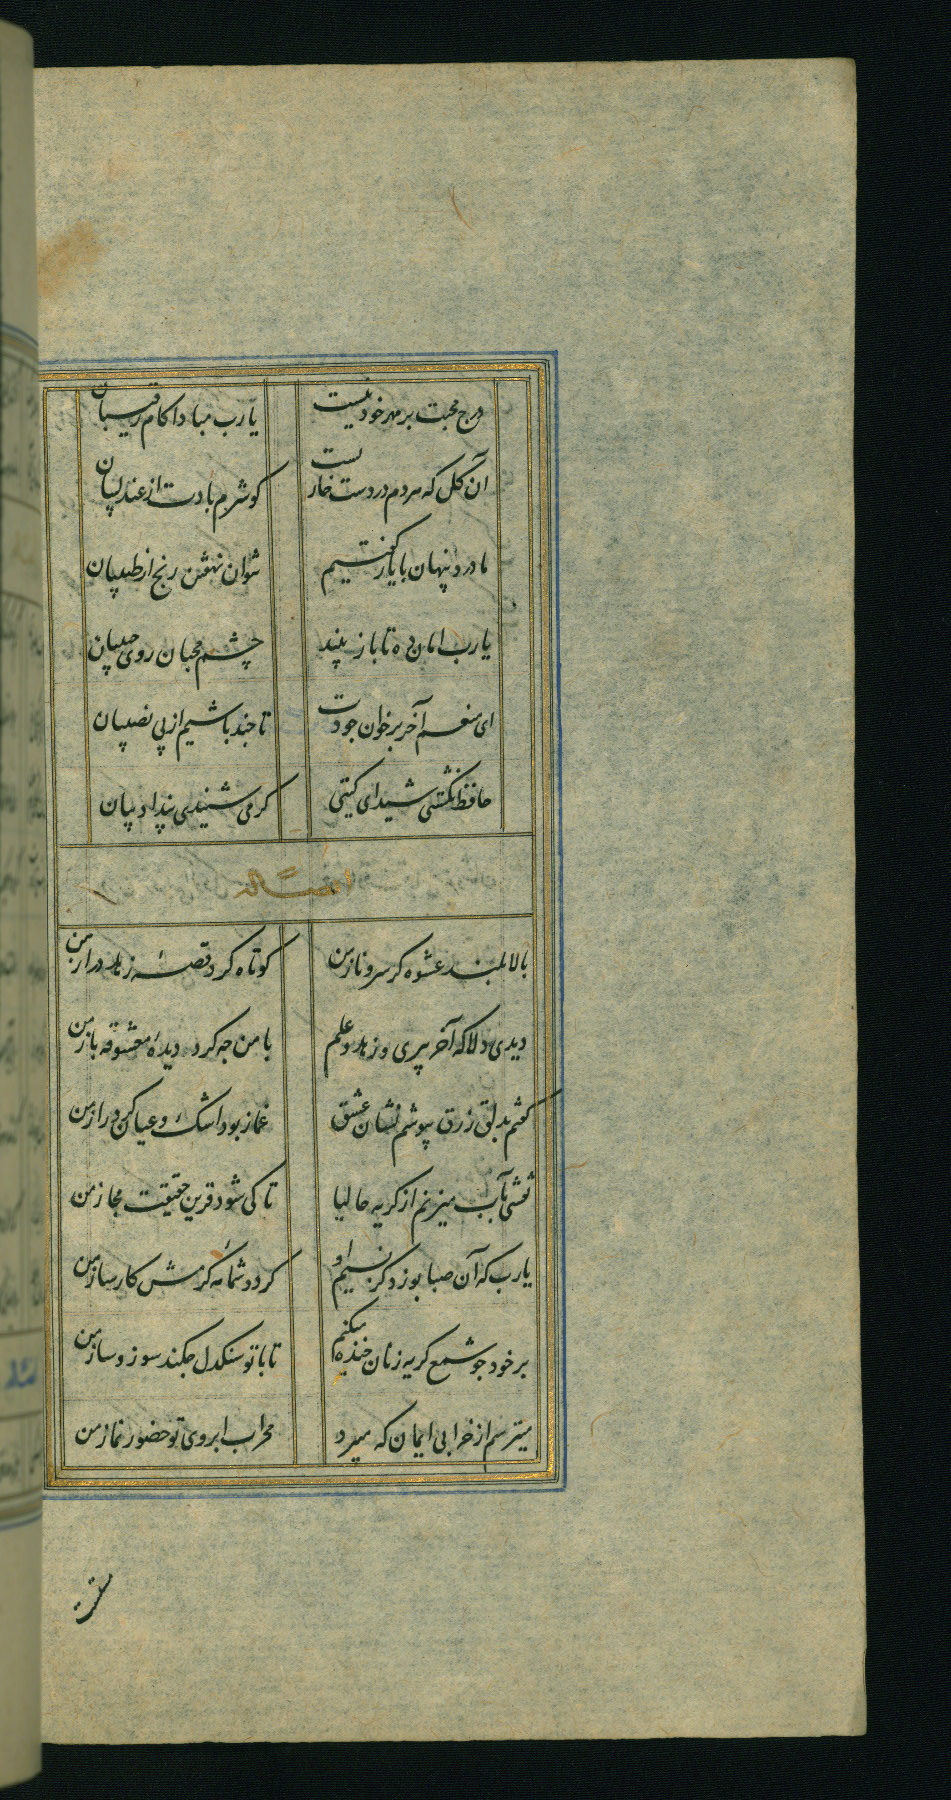 درج محبت بر مهر خود نیست یا رب مبادا کام رقیبان
آن گل که هر دم در دست خاریست کو شرم بادت از عندلیبان
ما درد پنهان با یار گفتیم نتوان نهفتن رنج از طبیبان
یا رب امان ده تا باز بیند چشم محبان روی حبیبان
ای منعم آخر بر خوان جودت تا جند باشیم از بی نصیبان
حافظ نکشتی شیدای کیتی کر می شنیدی پند ادیبان
ایضاً له
بالا بلند عشوه کر سرو ناز من کوتاه کرد قصهٔ زهد دراز من
دیدی دلا که آخر پیری و زهد و علم با من جه کرد دیدهٔ معشوقه باز من
کفتم بدلق زرق بپوشم نشان عشق غماز بود اشک و عیان کرد راز من
نقشی بآب میزنم از کریه حالیا تا کی شود قرین حقیقت مجاز من
یا رب که آن صبا بوزد کز نسیم او کردد شمامهٔ کرمش کارساز من
بر خود جو شمع کریه زنان خنده میکنم تا با تو سنکدل جکند سوز و ساز من
میترسم از خرابی ایمان که میبرد محراب ابروی تو حضور نماز من